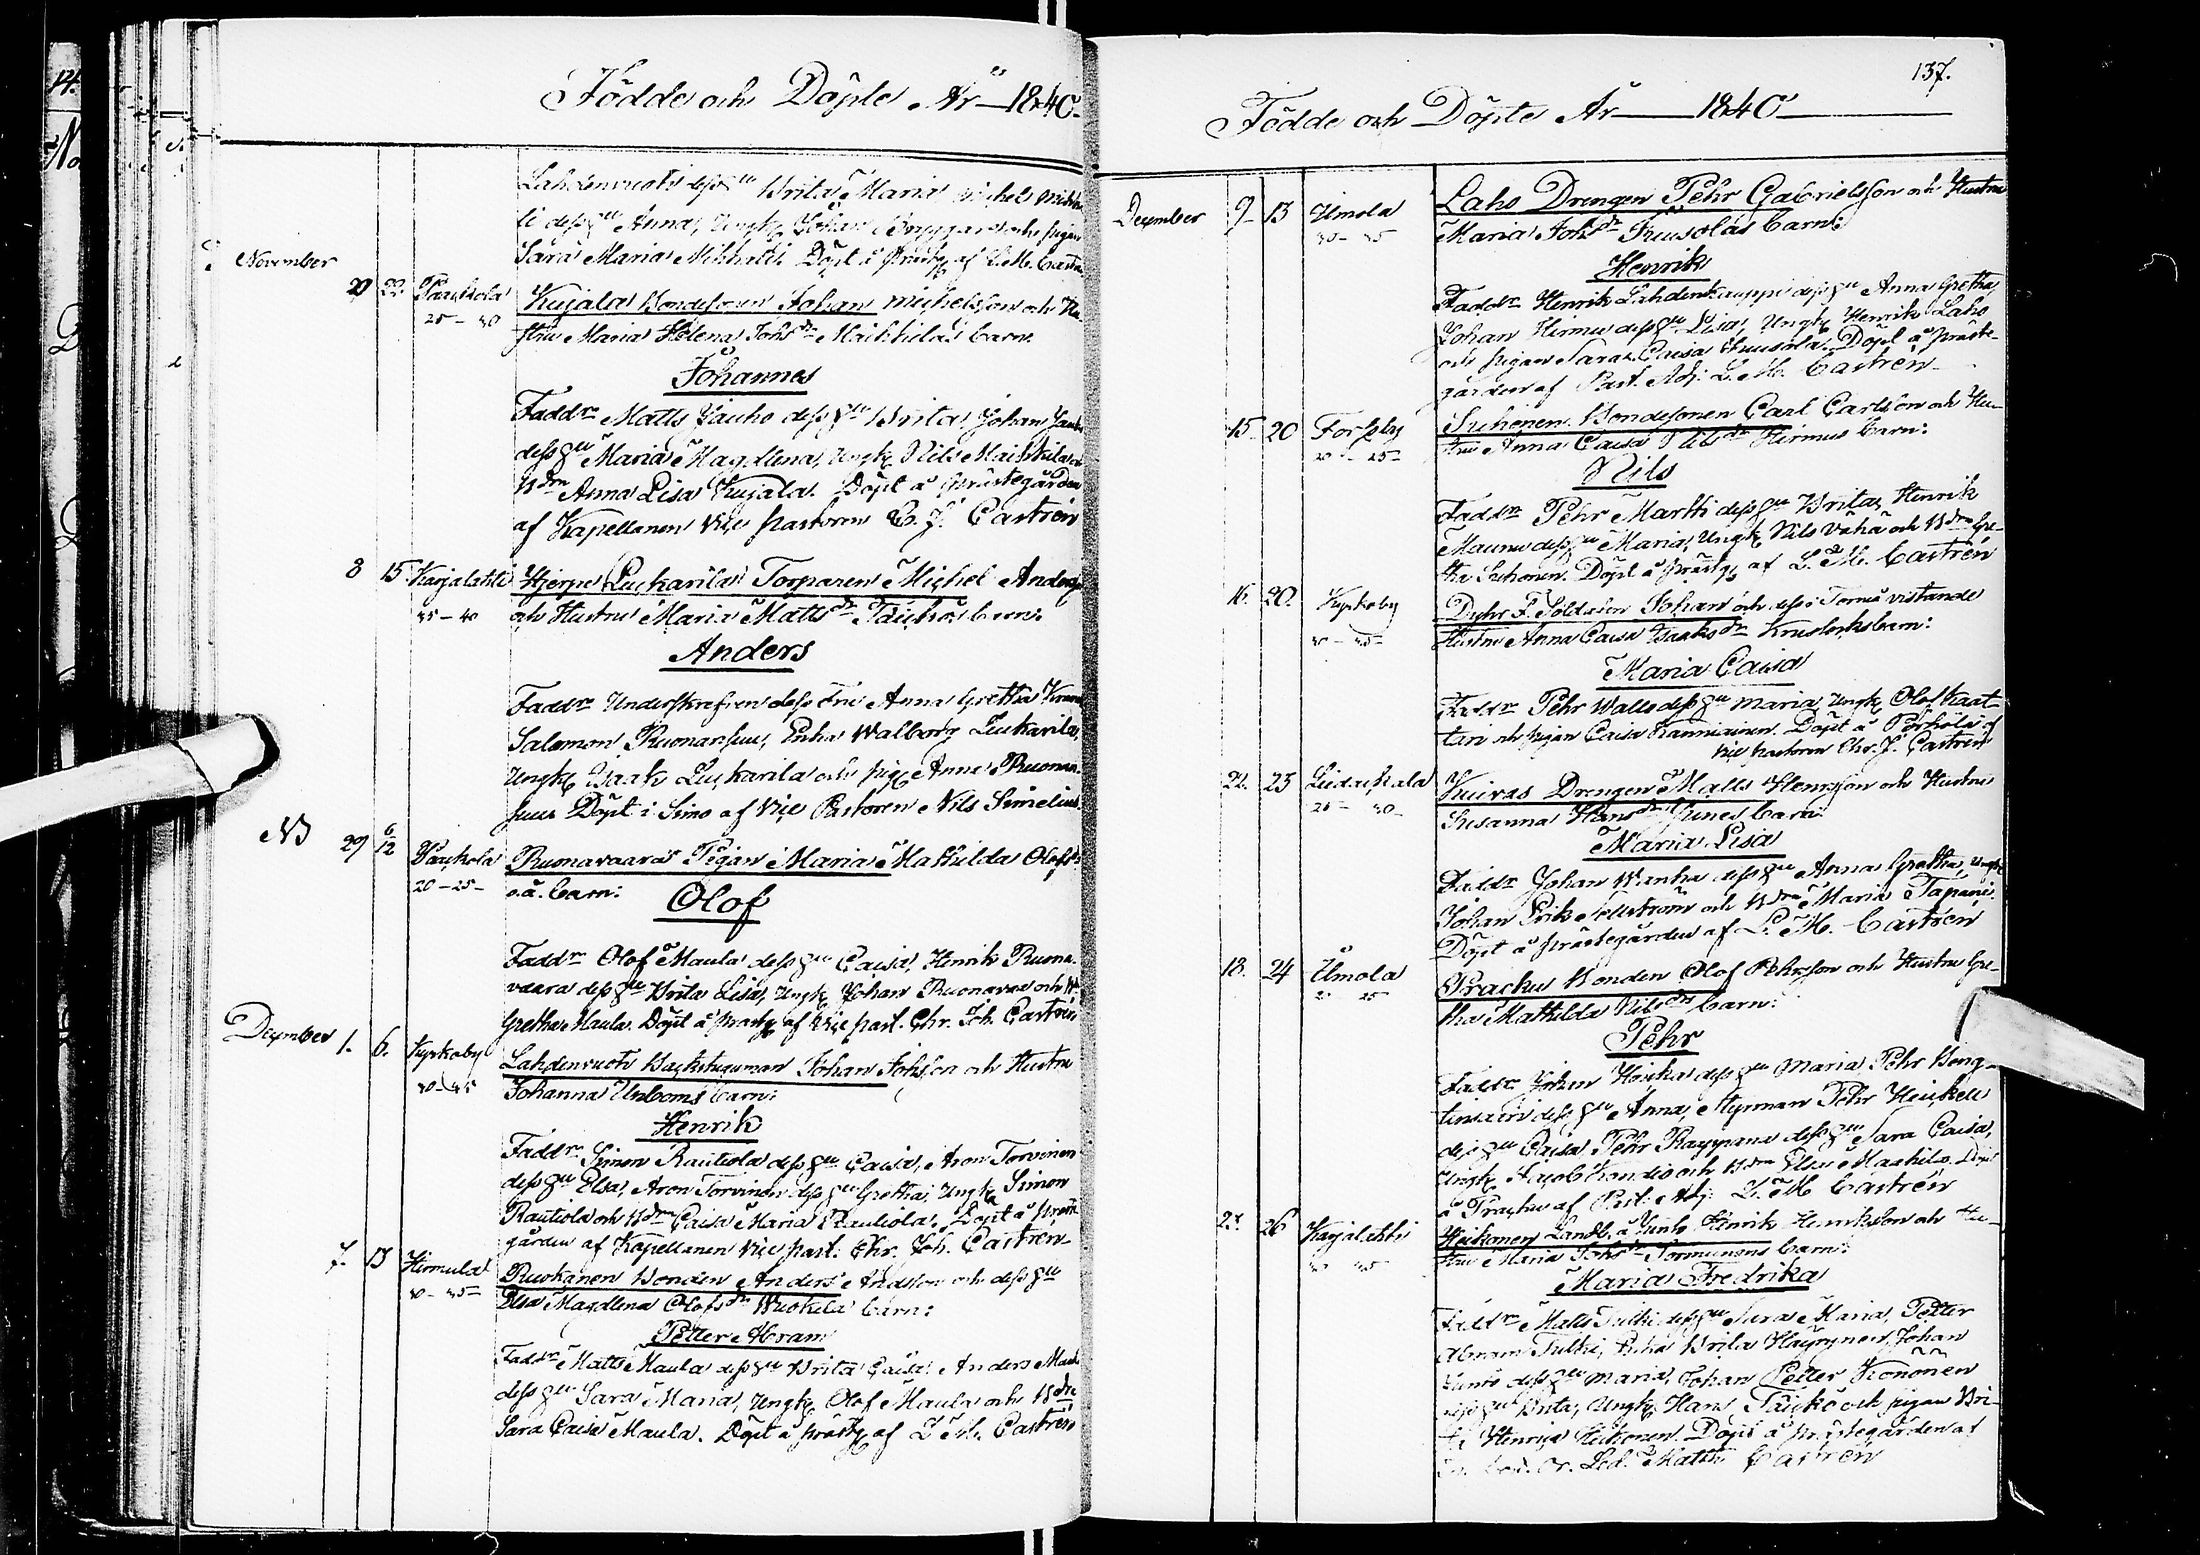 Födde och Döpte År 1840
Lahdenvuoti dess hu Brita Maria, Michel Mikku
li dess hu Anna, Ungk Johan Bryggare och pigan
Sara Maria Mikkuli. Döpt å prästg af L. M. Castrén
November
29 22. Paackola Kujala Bondesonen Johan Michelsson och Hu
25 – 30 stru Maria Helena Johsdr Maikkilas barn:
Johannes
Faddre Matts Jaucho dess hu Brita, Johan
dess hu Maria Magdlena, Ungk Nils Maikkila och
Bdrn Anna Lisa Kujala. Döpt å Prästegården
af Kapellanen Vice pastoren C. J. Castrén
8 15 Karjalahti Hjerpe Luckarila Torparen Michel Anders
35 – 40 och Hustru Maria Mattsdr barn:
Anders
Faddre dess Fru Anna Gretha
Salomon Ruonansuu, Enka Walborg Luckarila,
Ungk Isaak Luckarila och pig Anna Ruonan
suu Döpt i Simo af Vice Pastoren Nils Simelius
NB 29 6/12 Paackola Ruonavaara Pigan Maria Mathilda Olofsdr
20 – 25 – o.ä. barn: Olof
Faddre Olof Maula dess hu Caisa, Henrik Ruona
vaara dess hu Brita Lisa, Ungk Johan Ruonavaa och B
Gretha Maula. Döpt å Prästg af Vice past. Chr. Joh. Castrén
December 1. 6. Kyrkoby Lahdenvuoti Backstuguman Johan Johsson och Hustru
30 – 35 Johanna Unboms barn:
Henrik
Faddre Simon Rautiola dess hu Caisa, Aron Torvinen
dess hu Elsa, Aron Torvinen dess hu Gretha, Ungk Simon
Rautiola och Bdrn Caisa Maria Rautiola. Döpt å Präste
gården af Kapellanen Vice past: Chr. Joh. Castrén
7. 13 Hirmula Ruokanen Bonden Anders Andsson och dess hu
30 – 35 – Elsa Magdlena Olofsdr Wuokila barn:
Petter Abram
Faddre Matts Maula dess hu Brita Caisa, Anders Maula
dess hu Sara Maria, Ungk Olof Maula och Bdrn
Sara Caisa Maula. Döpt å prästg af L. M. Castrén
137.
Födde och Döpte År 1840
December 9 13 Umola Laho Drengen Pehr Gabrielsson och Hustru
30 – 35 Maria Johsdr Ruusolas barn:
Henrik
Faddre Henrik Lahdenkauppi dess hu Anna Gretha,
Johan Hirmu dess hu Lisa, Ungk Henrik Laho
och pigan Sara Caisa Ruusola. Döpt å präste-
gården af Past. Adj: L. M. Castrén
15. 20 Forssby Suhonen Bondesonen Carl Carlsson och Hu-
20 – 25 – stru Anna Caisa Nilsdr Hirmus barn:
Nils
Faddre Pehr Martti dess hu Brita, Henrik
Maunu dess hu Maria, Ungk Nils Vähä och Bdrn Gre-
tha Suhonen. Döpt å prästg af L. M. Castrén
16. 20. Kyrkoby Dyhr F. Soldaten Johan och dess i Torneå vistande
30 – 35 – Hustru Anna Caisa Isaaksdr barn:
Maria Caisa
Faddre Pehr Walla dess hu Maria, Ungk Olof Kaat-
tari och pigan Caisa Kanniainen. Döpt å Perhola af
Vice Pastoren Chr. J. Castrén
22. 23 Liedackala Kuivas Drengen Matts Henrsson och Hustru
25 – 30 – Susanna Hansdr Junes barn:
Maria Lisa
Faddre Johan Wanha dess hu Anna Gretha, Ungk
Johan Erik Sellström och Bdrn Maria Tapani.
Döpt å prästegården af L. M. Castrén
18. 24 Umola Pracku Bonden Olof Pehrsson och Hustru Gre-
25 tha Mathilda Nilsdr barn:
Pehr
Faddre Johan Hoicka dess hu Maria, Pehr Beng-
tinsaari dess hu Anna, Styrman Pehr Heickell
dess hu Caisa, Pehr Rayppana dess hu Sara Caisa,
Ungk Jacob Kondio och Bdrn Elsa Maskila. Döpt
å Pracku af Past: Adj: L. M. Castrén
26 Karjalahti Heikonen Landb. å Junto Henrik Henriksson och Hu-
stru Maria Johsdr Tormunens barn:
Maria Fredrika
Faddre Matts Tulki dess hu Sara Maria, Petter
Abram Tulki, Enka Brita Häyrynen, Johan
Junto dess hu Maria, Johan Petter Könönen
dess hu Brita, Ungk Hans och pigan Bri-
ta Henrica Heikonen. Döpt å prästegården af
Castrén